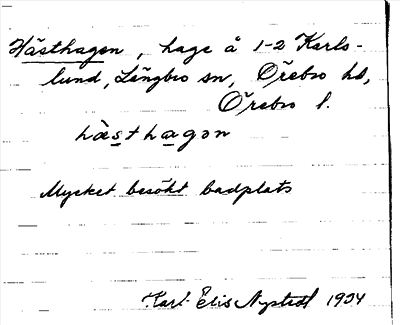 Hästhagen, hage å 1-2 Karls-
lund, Längbro sn, Örebro hd,
Örebro l.
hàsthagon
Mycket besökt badplats
Karl Elis Nystedt 1934